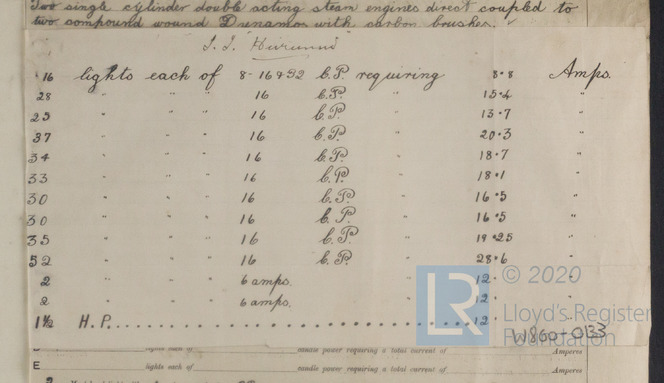 Two single cylinder double acting steam engines direct coupled to
two compound wound Dynamos with carbon brushes.
S.S. "Hurunui"
16 lights each of 8-16 & 32 C.P. requiring 8·8 Amps.
28 " " " 16 C.P. " 15·4 "
25 " " " 16 C.P. " 13·7 "
37 " " " 16 C.P. " 20·3 "
34 " " " 16 C.P. " 18·7 "
33 " " " 16 C.P. " 18·1 "
30 " " " 16 C.P. " 16·5 "
30 " " " 16 C.P. " 16·5 "
35 " " " 16 C.P. " 19·25 "
52 " " " 16 C.P. " 28·6 "
2 " " " 6 amps. 12· "
2 " " " 6 amps. 12· "
1½ H.P. 12·
LR © 2020
Lloyd's Register
Foundation
W860-0133
lights each of candle power requiring a total current of Amperes
E lights each of candle power requiring a total current of Amperes